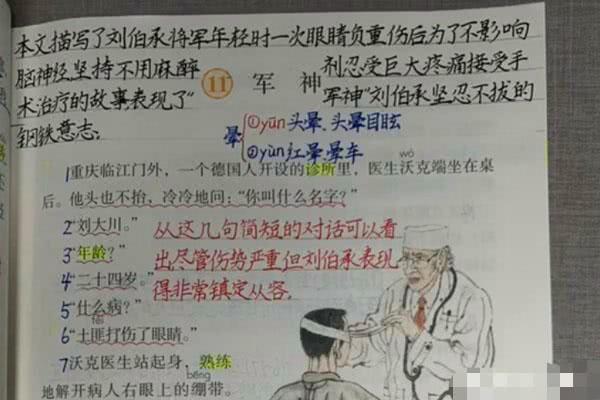 本文描写了刘伯承将军年轻时一次眼睛负重伤后为了不影响
脑神经坚持不用麻醉
剂忍受巨大疼痛接受手
术治疗的故事表现了"
军神"刘伯承坚忍不拔的
钢铁意志。
11 军 神
晕
①yūn头晕、头晕目眩
②yùn红晕、晕车
wò
1重庆临江门外,一个德国人开设的诊所里,医生沃克端坐在桌
后。他头也不抬,冷冷地问:"你叫什么名字?"
2"刘大川。"
3"年龄?"
4"二十四岁。"
5"什么病?"
从这几句简短的对话可以看
出尽管伤势严重但刘伯承表现
得非常镇定从容。
fěi
6"土匪打伤了眼睛。"
7沃克医生站起身,熟练
bēng
地解开病人右眼上的绷带。